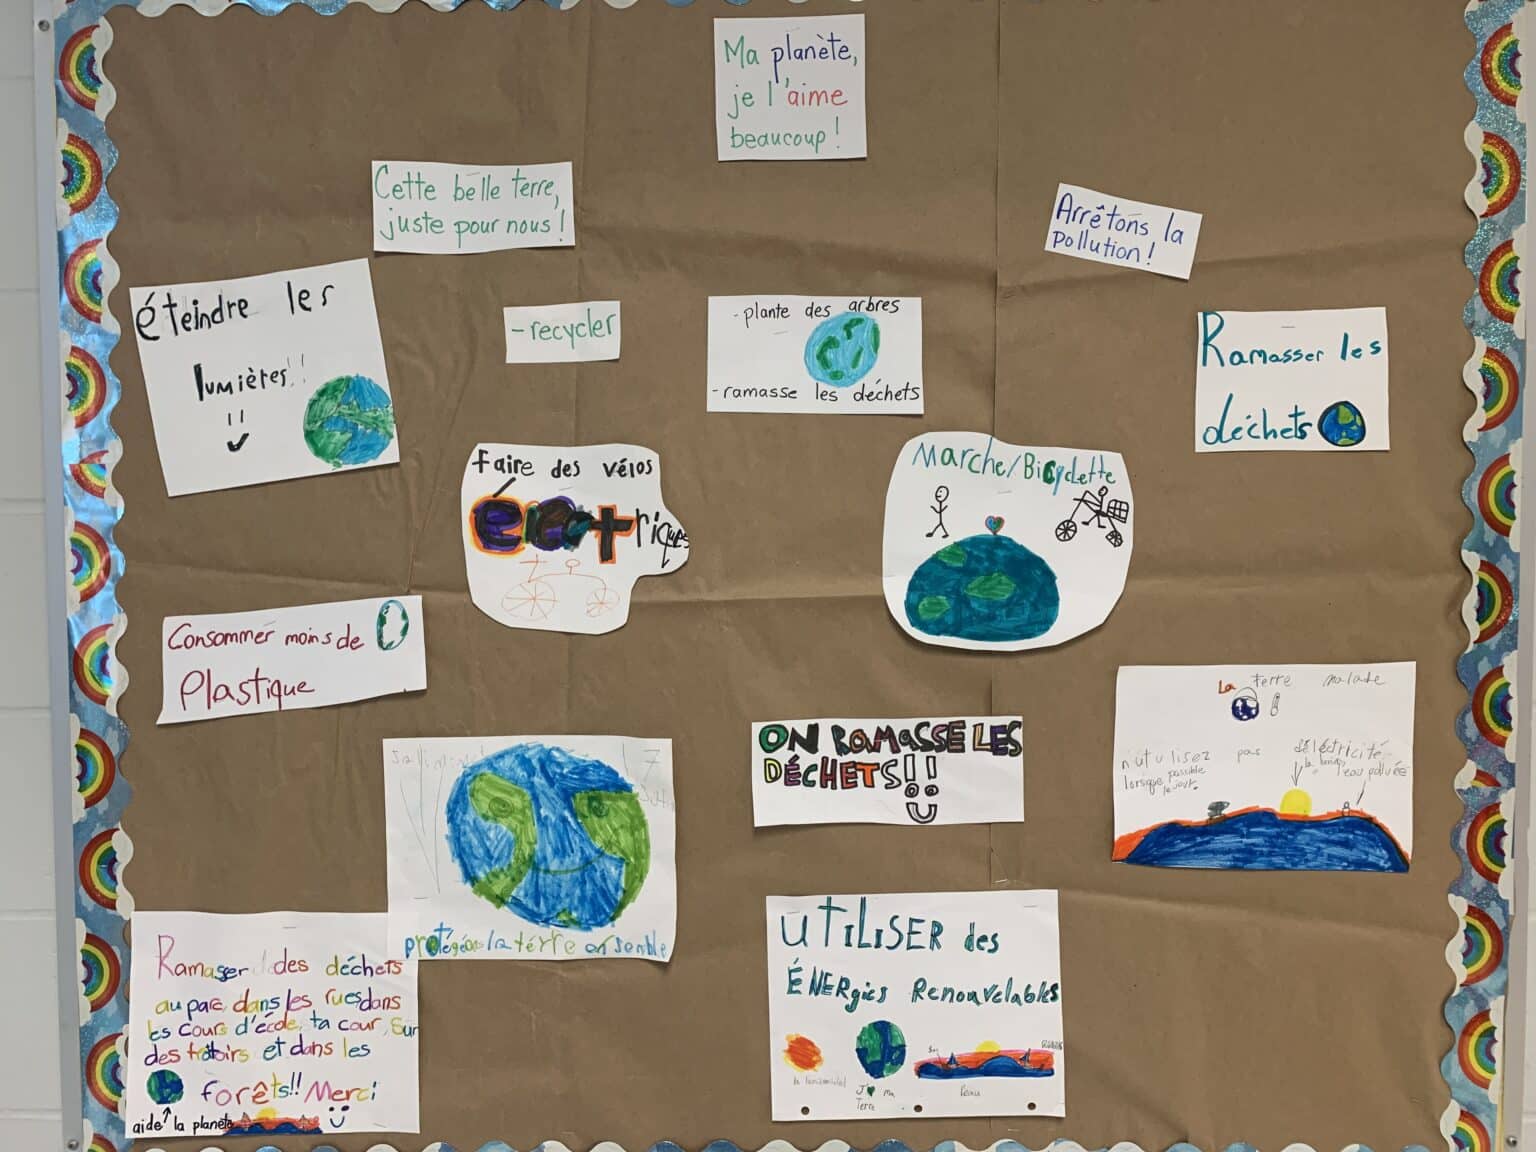 Ma planète,
je l'aime
beaucoup!
Cette belle terre,
juste pour nous!
Arrêtons la
pollution!
éteindre les
lumières!!
-recycler
-plante des arbres
-ramasse les déchets
Ramasser les
déchets
faire des vélos
électriques
Marche/Bicyclette
Consommer moins de
Plastique
ON RAMASSE LES
DÉCHETS!!
La terre malade
n'utulisez pas d'électricité
lorsque possible
le jour.
l'eau polluée
protégeons la terre ensemble
UTILISER des
ÉNERgies Renouvelables
J' ma
Terre
l'eau
Ramasser des déchets
au parc, dans les rues, dans
les cours d'école, ta cour, sur
des trotoirs et dans les
forêts!! Merci
aide la planète